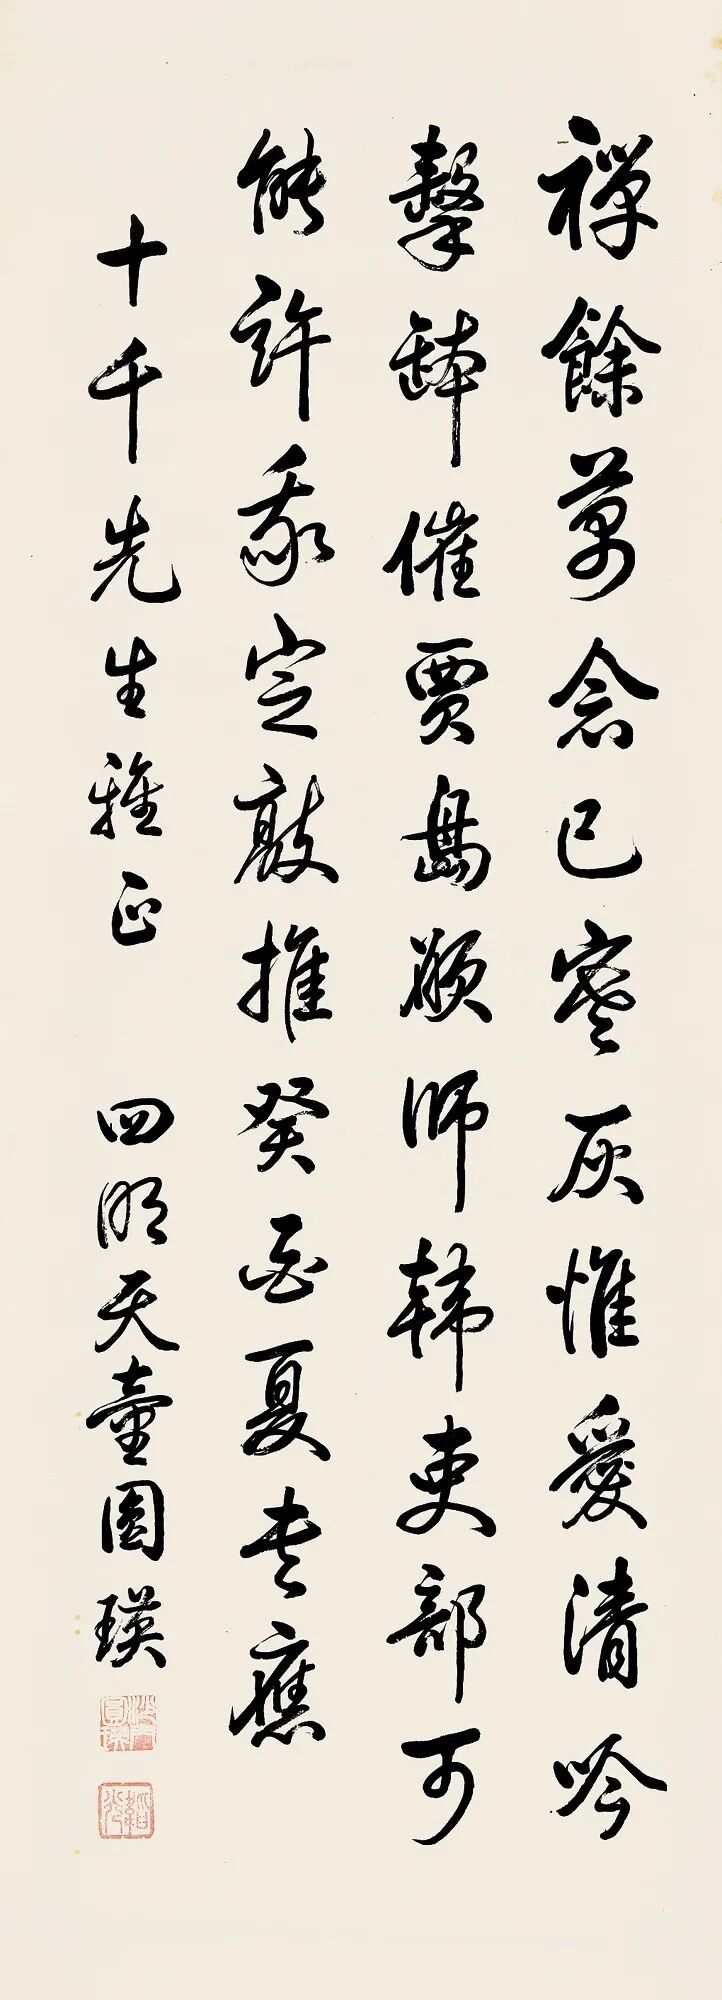 禪餘萬念已寒灰惟愛清吟
擊鉢催賈島願師韓吏部可
能許我定敲推癸酉夏圭應
十千先生雅正 四明天童圓瑛